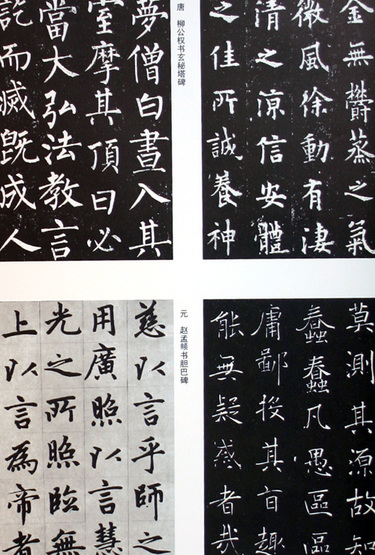 金無鬱蒸之氣
微風徐動有淒
清之涼信安體
之佳所誠養神
唐 柳公权书玄秘塔碑
夢僧白晝入其
室摩其頂曰必
當大弘法教言
訖而滅既成人
莫測其源故知
蠢蠢凡愚區區
庸鄙投其旨趣
能無疑惑者哉
元 赵孟頫书胆巴碑
慈以言乎師之
用廣照以言慧
光之所照臨無
上以言為帝者